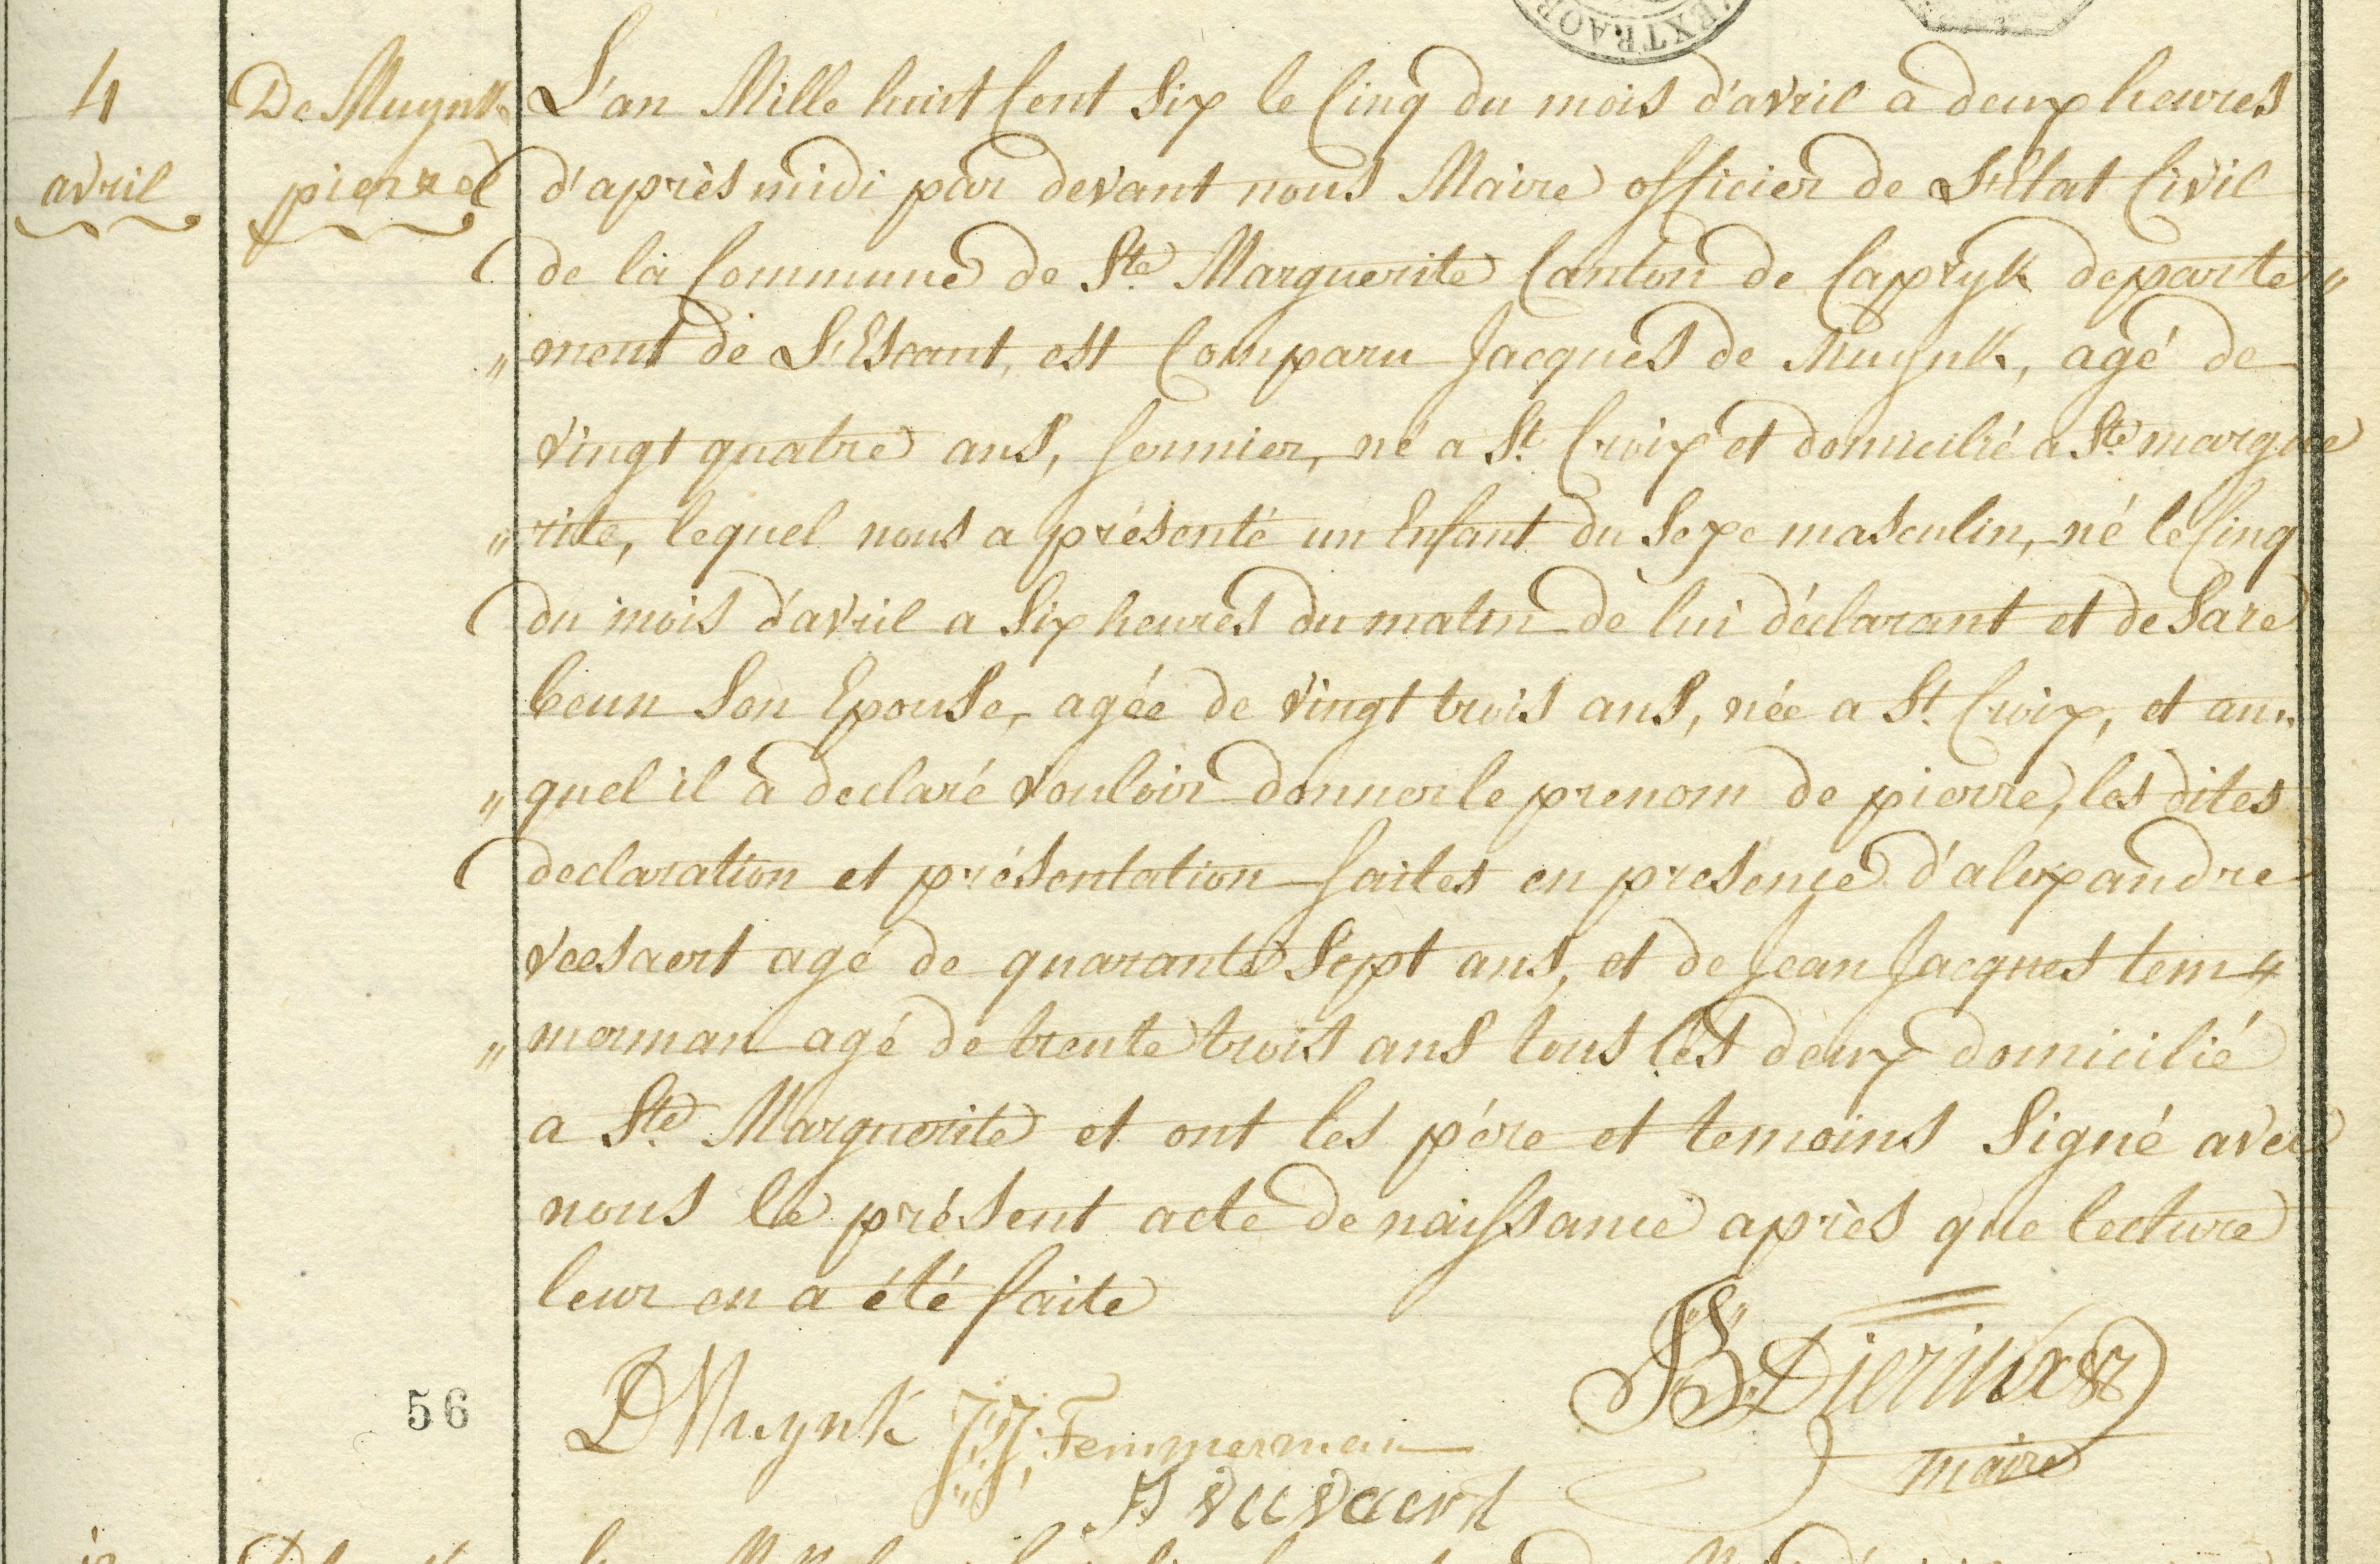 EXTRAOR
4
avril
De Muynk
pierre
L'an Mille huit Cent Six le Cinq du mois d'avril a deux heures
d'après midi par devant nous Maire officier de L'Etat Civil
de la Commune de Ste Marguerite Canton de Capryk departe„
„ment de L'Escaut, est Comparu Jacques de Muynk, agé de
vingt quatre ans, fermier, né a St. Croix et domicilié a Ste margue
„rite, lequel nous a présenté un Enfant du Sexe masculin, né le Cinq
du mois d'avril a Six heures du matin de lui déclarant et de Sare
beun Son Epouse, agée de vingt trois ans, née a St. Croix, et au„
„quel il a declaré vouloir donner le prenom de pierre, les dites
declaration et présentation faites en presence d'alexandre
veesaert agé de quarante Sept ans, et de Jean Jacques tem„
„merman agé de trente trois ans tous les deux domicilié
a Ste Marguerite et ont les père et temoins Signé avec
nous le présent acte de naissance après que lecture
leur en a été faite
56
D Muynk J:J: Temmerman
maire